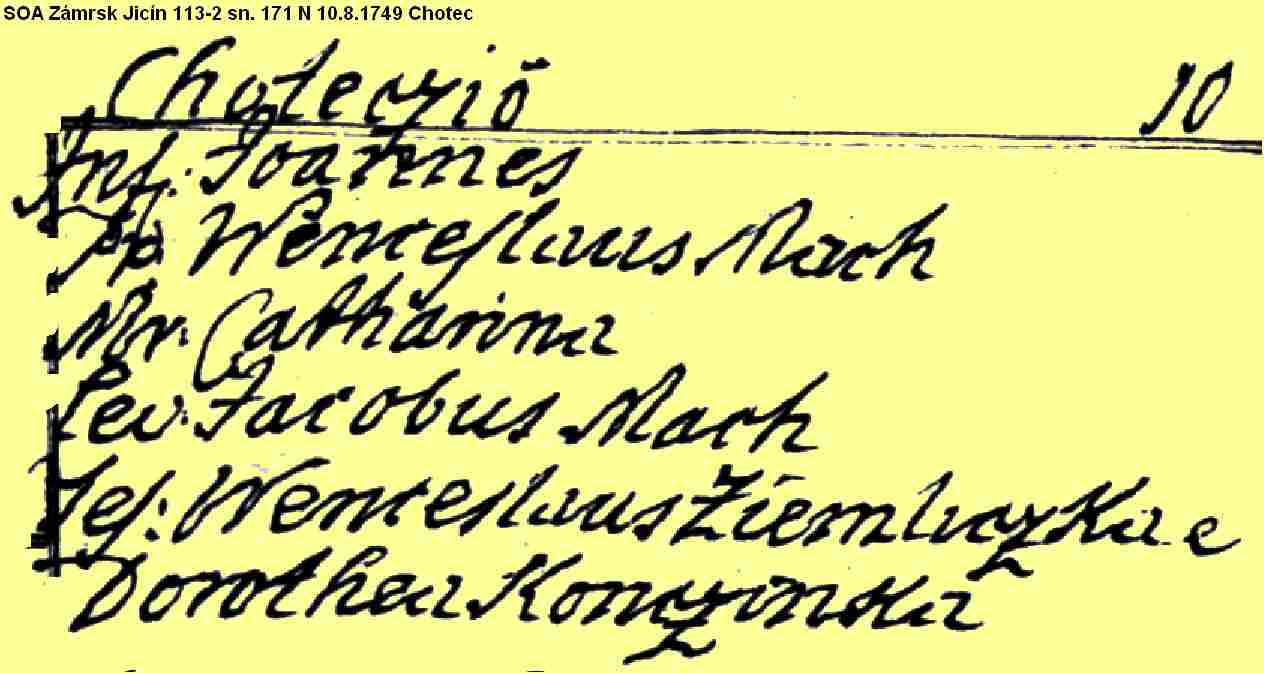 SOA Zámrsk Jicín 113-2 sn. 171 N 10.8.1749 Chotec
Choteczió 10
Inf: Joannes
Pr. Wenceslaus Mach
Mr. Catharina
Lev. Jacobus Mach
Tes: Wenceslaus Ziemliczka e
Dorothea Konczinska